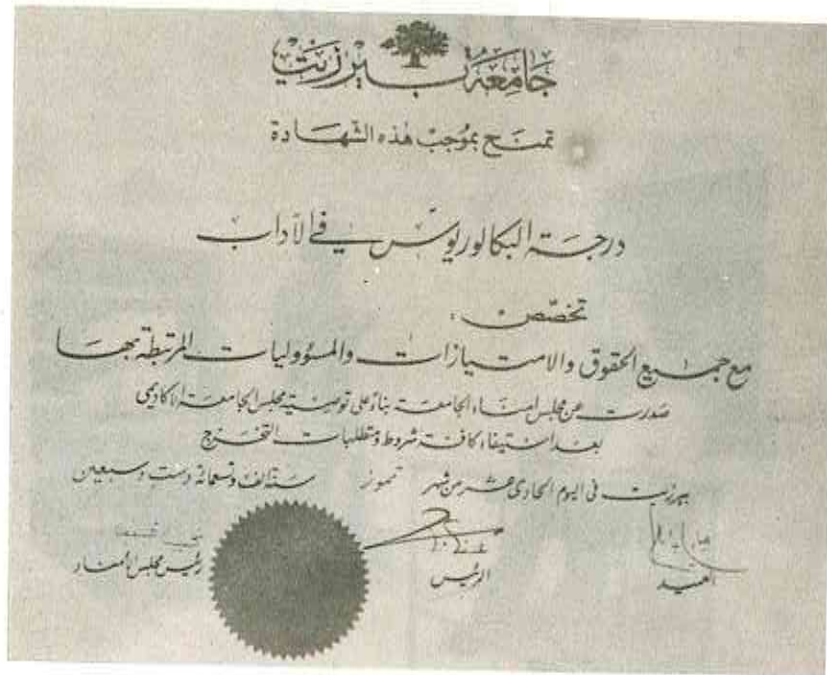 جامعة بيرزيت
تمنح بموجب هذه الشهادة
درجة البكالوريوس في الآداب
تخصص :
مع جميع الحقوق والامتيازات والمسؤوليات المرتبطة بها
صدرت عن مجلس امناء الجامعة بناءً على توصية مجلس الجامعة الاكاديمي
بعد استيفاء كافة شروط ومتطلبات التخرج
بيرزيت في اليوم الحادي عشر من شهر تموز سنة الف وتسعمائة وست وسبعين
العميد الرئيس رئيس مجلس الأمناء